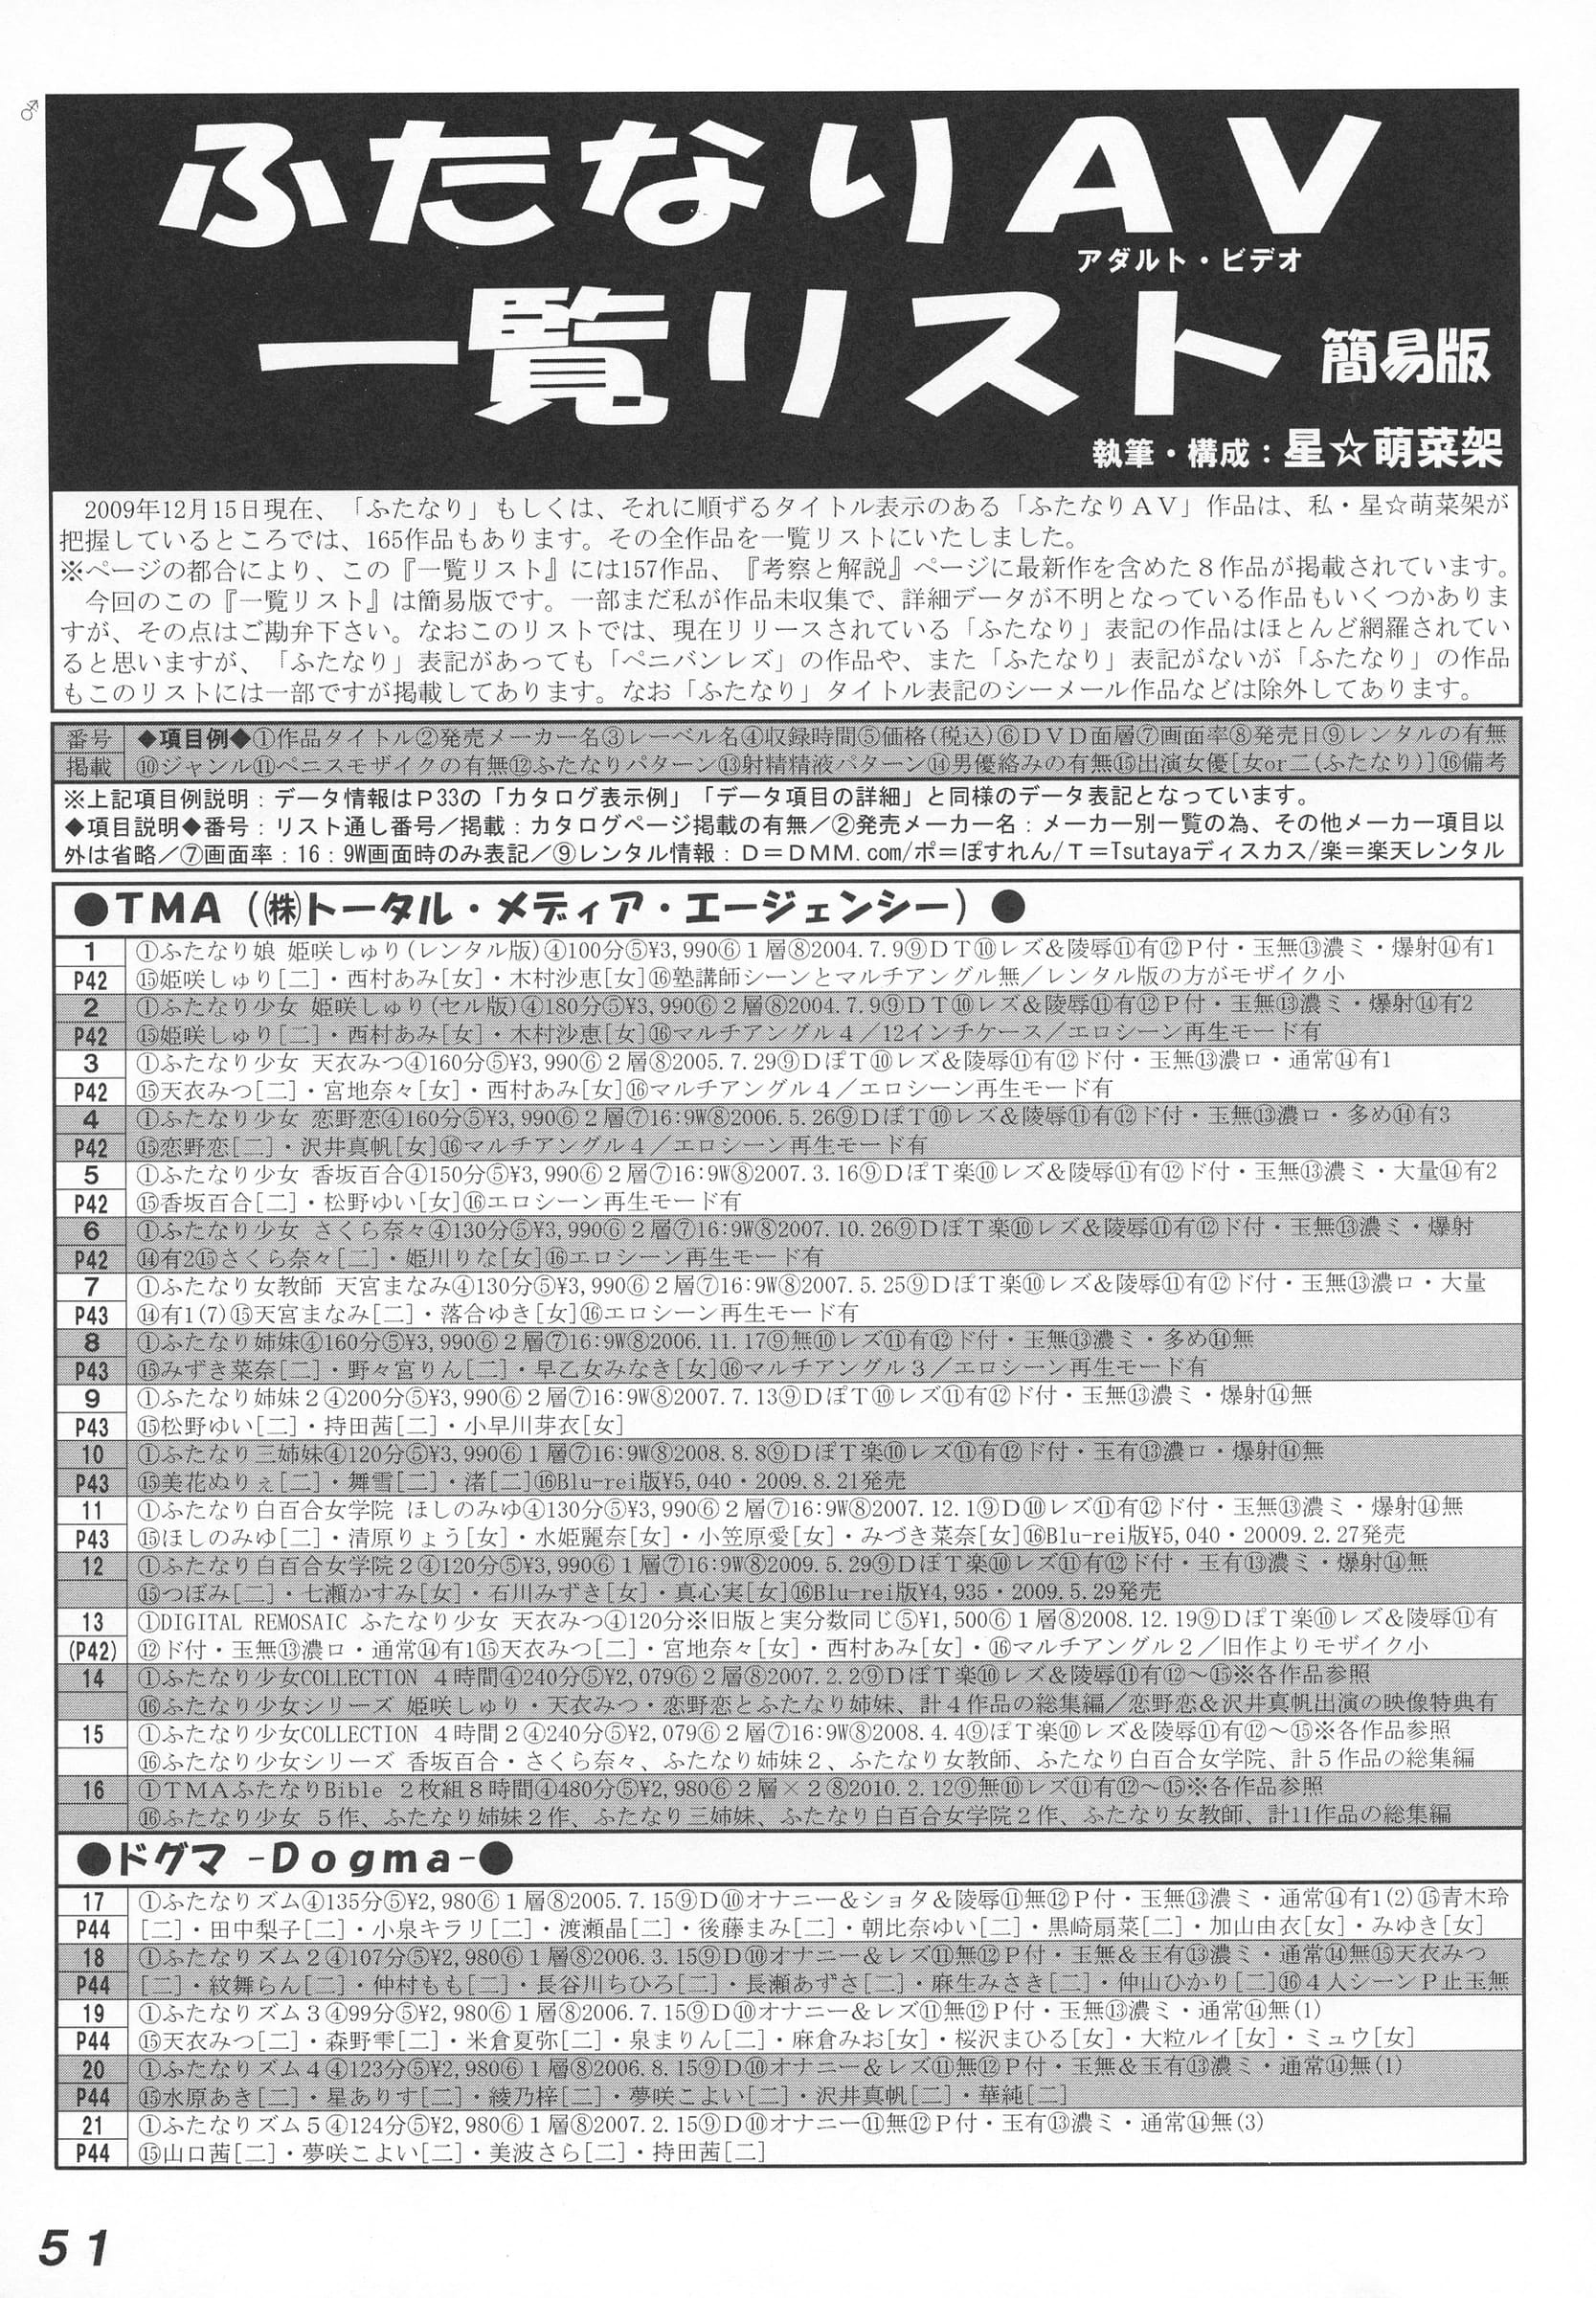 ふたなりAV
アダルト・ビデオ
一覧リスト 簡易版
執筆・構成：星☆萌菜架
2009年12月15日現在、「ふたなり」もしくは、それに順ずるタイトル表示のある「ふたなりＡＶ」作品は、私・星☆萌菜架が
把握しているところでは、165作品もあります。その全作品を一覧リストにいたしました。
※ページの都合により、この『一覧リスト』には157作品、『考察と解説』ページに最新作を含めた８作品が掲載されています。
今回のこの『一覧リスト』は簡易版です。一部まだ私が作品未収集で、詳細データが不明となっている作品もいくつかありま
すが、その点はご勘弁下さい。なおこのリストでは、現在リリースされている「ふたなり」表記の作品はほとんど網羅されてい
ると思いますが、「ふたなり」表記があっても「ペニバンレズ」の作品や、また「ふたなり」表記がないが「ふたなり」の作品
もこのリストには一部ですが掲載してあります。なお「ふたなり」タイトル表記のシーメール作品などは除外してあります。
番号 ◆項目例◆①作品タイトル②発売メーカー名③レーベル名④収録時間⑤価格(税込)⑥ＤＶＤ面層⑦画面率⑧発売日⑨レンタルの有無
掲載 ⑩ジャンル⑪ペニスモザイクの有無⑫ふたなりパターン⑬射精精液パターン⑭男優絡みの有無⑮出演女優[女or二(ふたなり)]⑯備考
※上記項目例説明：データ情報はＰ33の「カタログ表示例」「データ項目の詳細」と同様のデータ表記となっています。
◆項目説明◆番号：リスト通し番号／掲載：カタログページ掲載の有無／②発売メーカー名：メーカー別一覧の為、その他メーカー項目以
外は省略／⑦画面率：16：9W画面時のみ表記／⑨レンタル情報：Ｄ＝ＤＭＭ.com/ポ＝ぽすれん/Ｔ＝Tsutayaディスカス/楽＝楽天レンタル
●TMA（㈱トータル・メディア・エージェンシー）●
1 ①ふたなり娘 姫咲しゅり(レンタル版)④100分⑤¥3,990⑥１層⑧2004.7.9⑨ＤＴ⑩レズ＆陵辱⑪有⑫Ｐ付・玉無⑬濃ミ・爆射⑭有1
P42 ⑮姫咲しゅり[二]・西村あみ[女]・木村沙恵[女]⑯塾講師シーンとマルチアングル無／レンタル版の方がモザイク小
2 ①ふたなり少女 姫咲しゅり(セル版)④180分⑤¥3,990⑥２層⑧2004.7.9⑨ＤＴ⑩レズ＆陵辱⑪有⑫Ｐ付・玉無⑬濃ミ・爆射⑭有2
P42 ⑮姫咲しゅり[二]・西村あみ[女]・木村沙恵[女]⑯マルチアングル４／12インチケース／エロシーン再生モード有
3 ①ふたなり少女 天衣みつ④160分⑤¥3,990⑥２層⑧2005.7.29⑨ＤぽＴ⑩レズ＆陵辱⑪有⑫ド付・玉無⑬濃ロ・通常⑭有1
P42 ⑮天衣みつ[二]・宮地奈々[女]・西村あみ[女]⑯マルチアングル４／エロシーン再生モード有
4 ①ふたなり少女 恋野恋④160分⑤¥3,990⑥２層⑦16:9W⑧2006.5.26⑨ＤぽＴ⑩レズ＆陵辱⑪有⑫ド付・玉無⑬濃ロ・多め⑭有3
P42 ⑮恋野恋[二]・沢井真帆[女]⑯マルチアングル４／エロシーン再生モード有
5 ①ふたなり少女 香坂百合④150分⑤¥3,990⑥２層⑦16:9W⑧2007.3.16⑨ＤぽＴ楽⑩レズ＆陵辱⑪有⑫ド付・玉無⑬濃ミ・大量⑭有2
P42 ⑮香坂百合[二]・松野ゆい[女]⑯エロシーン再生モード有
6 ①ふたなり少女 さくら奈々④130分⑤¥3,990⑥２層⑦16:9W⑧2007.10.26⑨ＤぽＴ楽⑩レズ＆陵辱⑪有⑫ド付・玉無⑬濃ミ・爆射
P42 ⑭有2⑮さくら奈々[二]・姫川りな[女]⑯エロシーン再生モード有
7 ①ふたなり女教師 天宮まなみ④130分⑤¥3,990⑥２層⑦16:9W⑧2007.5.25⑨ＤぽＴ楽⑩レズ＆陵辱⑪有⑫ド付・玉無⑬濃ロ・大量
P43 ⑭有1(7)⑮天宮まなみ[二]・落合ゆき[女]⑯エロシーン再生モード有
8 ①ふたなり姉妹④160分⑤¥3,990⑥２層⑦16:9W⑧2006.11.17⑨無⑩レズ⑪有⑫ド付・玉無⑬濃ミ・多め⑭無
P43 ⑮みずき菜奈[二]・野々宮りん[二]・早乙女みなき[女]⑯マルチアングル３／エロシーン再生モード有
9 ①ふたなり姉妹２④200分⑤¥3,990⑥２層⑦16:9W⑧2007.7.13⑨ＤぽＴ⑩レズ⑪有⑫ド付・玉無⑬濃ミ・爆射⑭無
P43 ⑮松野ゆい[二]・持田茜[二]・小早川芽衣[女]
10 ①ふたなり三姉妹④120分⑤¥3,990⑥１層⑦16:9W⑧2008.8.8⑨ＤぽＴ楽⑩レズ⑪有⑫ド付・玉有⑬濃ロ・爆射⑭無
P43 ⑮美花ぬりぇ[二]・舞雪[二]・渚[二]⑯Blu-rei版¥5,040・2009.8.21発売
11 ①ふたなり白百合女学院 ほしのみゆ④130分⑤¥3,990⑥２層⑦16:9W⑧2007.12.1⑨Ｄ⑩レズ⑪有⑫ド付・玉無⑬濃ミ・爆射⑭無
P43 ⑮ほしのみゆ[二]・清原りょう[女]・水姫麗奈[女]・小笠原愛[女]・みづき菜奈[女]⑯Blu-rei版¥5,040・20009.2.27発売
12 ①ふたなり白百合女学院２④120分⑤¥3,990⑥１層⑦16:9W⑧2009.5.29⑨ＤぽＴ楽⑩レズ⑪有⑫ド付・玉有⑬濃ミ・爆射⑭無
⑮つぼみ[二]・七瀬かすみ[女]・石川みずき[女]・真心実[女]⑯Blu-rei版¥4,935・2009.5.29発売
13 ①DIGITAL REMOSAIC ふたなり少女 天衣みつ④120分※旧版と実分数同じ⑤¥1,500⑥１層⑧2008.12.19⑨ＤぽＴ楽⑩レズ＆陵辱⑪有
(P42) ⑫ド付・玉無⑬濃ロ・通常⑭有1⑮天衣みつ[二]・宮地奈々[女]・西村あみ[女]・⑯マルチアングル２／旧作よりモザイク小
14 ①ふたなり少女COLLECTION ４時間④240分⑤¥2,079⑥２層⑧2007.2.2⑨ＤぽＴ楽⑩レズ＆陵辱⑪有⑫～⑮※各作品参照
⑯ふたなり少女シリーズ 姫咲しゅり・天衣みつ・恋野恋とふたなり姉妹、計４作品の総集編／恋野恋＆沢井真帆出演の映像特典有
15 ①ふたなり少女COLLECTION ４時間２④240分⑤¥2,079⑥２層⑦16:9W⑧2008.4.4⑨ぽＴ楽⑩レズ＆陵辱⑪有⑫～⑮※各作品参照
⑯ふたなり少女シリーズ 香坂百合・さくら奈々、ふたなり姉妹２、ふたなり女教師、ふたなり白百合女学院、計５作品の総集編
16 ①ＴＭＡふたなりBible ２枚組８時間④480分⑤¥2,980⑥２層×２⑧2010.2.12⑨無⑩レズ⑪有⑫～⑮※各作品参照
⑯ふたなり少女 ５作、ふたなり姉妹２作、ふたなり三姉妹、ふたなり白百合女学院２作、ふたなり女教師、計11作品の総集編
●ドグマ -Dogma-●
17 ①ふたなりズム④135分⑤¥2,980⑥１層⑧2005.7.15⑨Ｄ⑩オナニー＆ショタ＆陵辱⑪無⑫Ｐ付・玉無⑬濃ミ・通常⑭有1(2)⑮青木玲
P44 [二]・田中梨子[二]・小泉キラリ[二]・渡瀬晶[二]・後藤まみ[二]・朝比奈ゆい[二]・黒崎扇菜[二]・加山由衣[女]・みゆき[女]
18 ①ふたなりズム２④107分⑤¥2,980⑥１層⑧2006.3.15⑨Ｄ⑩オナニー＆レズ⑪無⑫Ｐ付・玉無＆玉有⑬濃ミ・通常⑭無⑮天衣みつ
P44 [二]・紋舞らん[二]・仲村もも[二]・長谷川ちひろ[二]・長瀬あずさ[二]・麻生みさき[二]・仲山ひかり[二]⑯４人シーンＰ止玉無
19 ①ふたなりズム３④99分⑤¥2,980⑥１層⑧2006.7.15⑨Ｄ⑩オナニー＆レズ⑪無⑫Ｐ付・玉無⑬濃ミ・通常⑭無(1)
P44 ⑮天衣みつ[二]・森野雫[二]・米倉夏弥[二]・泉まりん[二]・麻倉みお[女]・桜沢まひる[女]・大粒ルイ[女]・ミュウ[女]
20 ①ふたなりズム４④123分⑤¥2,980⑥１層⑧2006.8.15⑨Ｄ⑩オナニー＆レズ⑪無⑫Ｐ付・玉無＆玉有⑬濃ミ・通常⑭無(1)
P44 ⑮水原あき[二]・星ありす[二]・綾乃梓[二]・夢咲こよい[二]・沢井真帆[二]・華純[二]
21 ①ふたなりズム５④124分⑤¥2,980⑥１層⑧2007.2.15⑨Ｄ⑩オナニー⑪無⑫Ｐ付・玉有⑬濃ミ・通常⑭無(3)
P44 ⑮山口茜[二]・夢咲こよい[二]・美波さら[二]・持田茜[二]
51